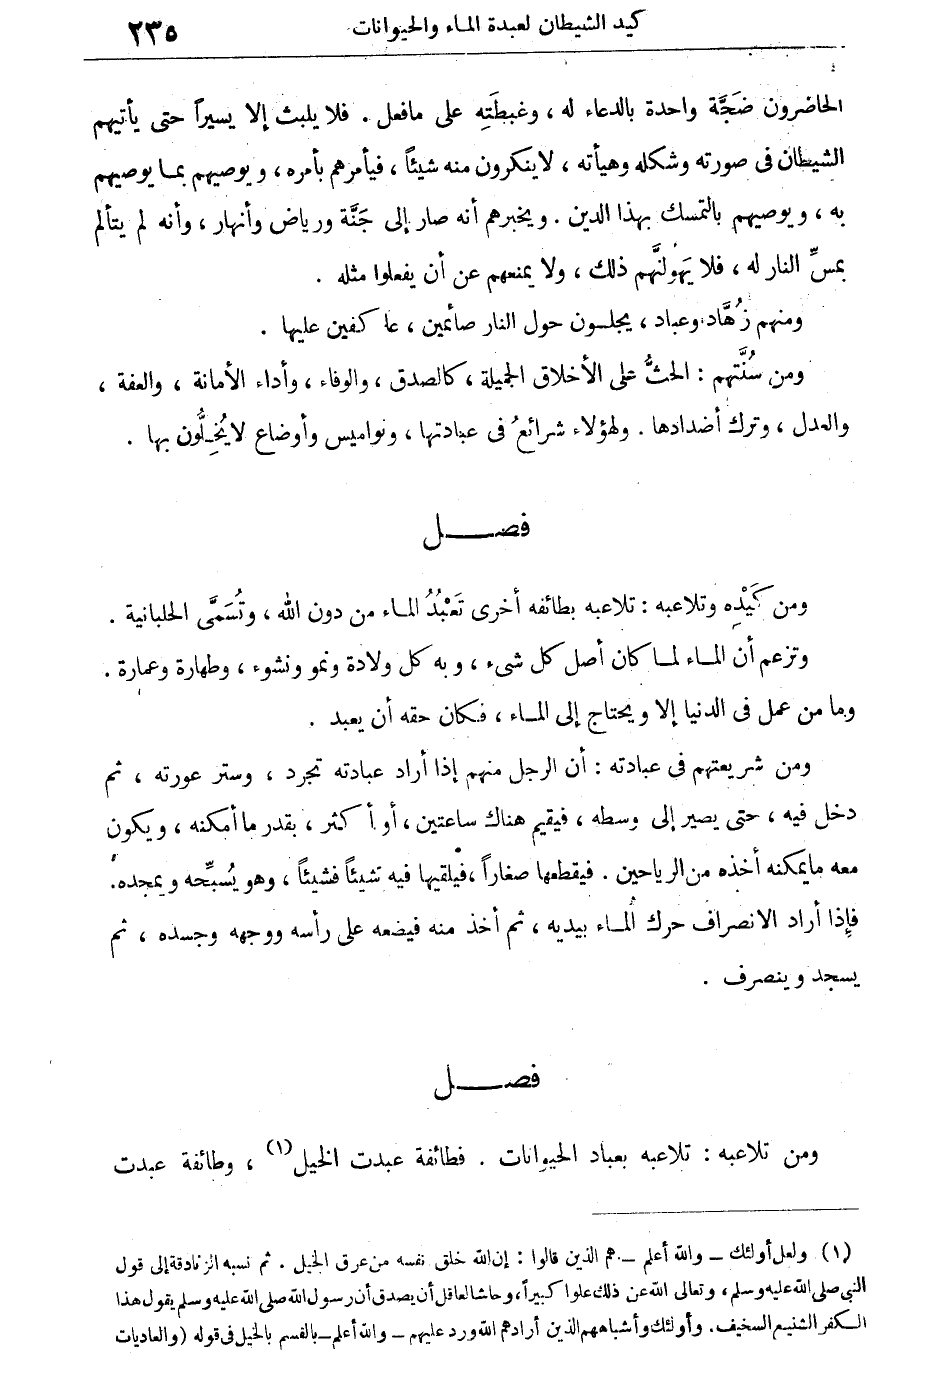 كيد الشيطان لعبدة الماء والحيوانات ٢٣٥
الحاضرون ضَجَّة واحدة بالدعاء له ، وغبطَتِه على مافعل . فلا يلبث إلا يسيراً حتى يأتيهم
الشيطان فى صورته وشكله وهيأته ، لاينكرون منه شيئاً ، فيأمرهم بأمره ، ويوصيهم بما يوصيهم
به ، ويوصيهم بالتمسك بهذا الدين . ويخبرهم أنه صار إلى جَنَّة ورياض وأنهار ، وأنه لم يتألم
بمسِّ النار له ، فلا يَهُولَنَّهم ذلك ، ولا يمنعهم عن أن يفعلوا مثله .
ومنهم زُهَّاد وعباد ، يجلسون حول النار صائمين ، عاكفين عليها .
ومن سُنَّتهم : الحثُّ على الأخلاق الجميلة ، كالصدق ، والوفاء ، وأداء الأمانة ، والعفة ،
والعدل ، وترك أضدادها . ولهؤلاء شرائعُ فى عبادتها ، ونواميس وأوضاع لايُخِلُّون بها .
فصل
ومن كَيْدِه وتلاعبه : تلاعبه بطائفه أخرى تَعْبُدُ الماء من دون الله ، وتُسَمَّى الحلبانية .
وتزعم أن الماء لما كان أصل كل شىء ، وبه كل ولادة ونمو ونشوء ، وطهارة وعمارة .
وما من عمل فى الدنيا إلا ويحتاج إلى الماء ، فكان حقه أن يعبد .
ومن شريعتهم فى عبادته : أن الرجل منهم إذا أراد عبادته تجرد ، وستر عورته ، ثم
دخل فيه ، حتى يصير إلى وسطه ، فيقيم هناك ساعتين ، أو أكثر ، بقدر ما أمكنه ، ويكون
معه مايمكنه أخذه من الرياحين . فيقطعها صغاراً ، فيلقيها فيه شيئاً فشيئاً ، وهو يُسبِّحه ويمجده .
فإذا أراد الانصراف حرك الماء بيديه ، ثم أخذ منه فيضعه على رأسه ووجهه وجسده ، ثم
يسجد وينصرف .
فصل
ومن تلاعبه : تلاعبه بعباد الحيوانات . فطائفة عبدت الخيل (١) ، وطائفة عبدت
(١) ولعل أولئك – والله أعلم – هم الذين قالوا : إن الله خلق نفسه من عرق الخيل . ثم نسبه الزنادقة إلى قول
النبي صلى الله عليه وسلم ، وتعالى الله عن ذلك علوا كبيراً ، وحاشا لعاقل أن يصدق أن رسول الله صلى الله عليه وسلم يقول هذا
الكفر الشنيع السخيف . وأولئك وأشباههم الذين أرادهم الله ورد عليهم – والله أعلم – بالقسم بالخيل فى قوله (والعاديات